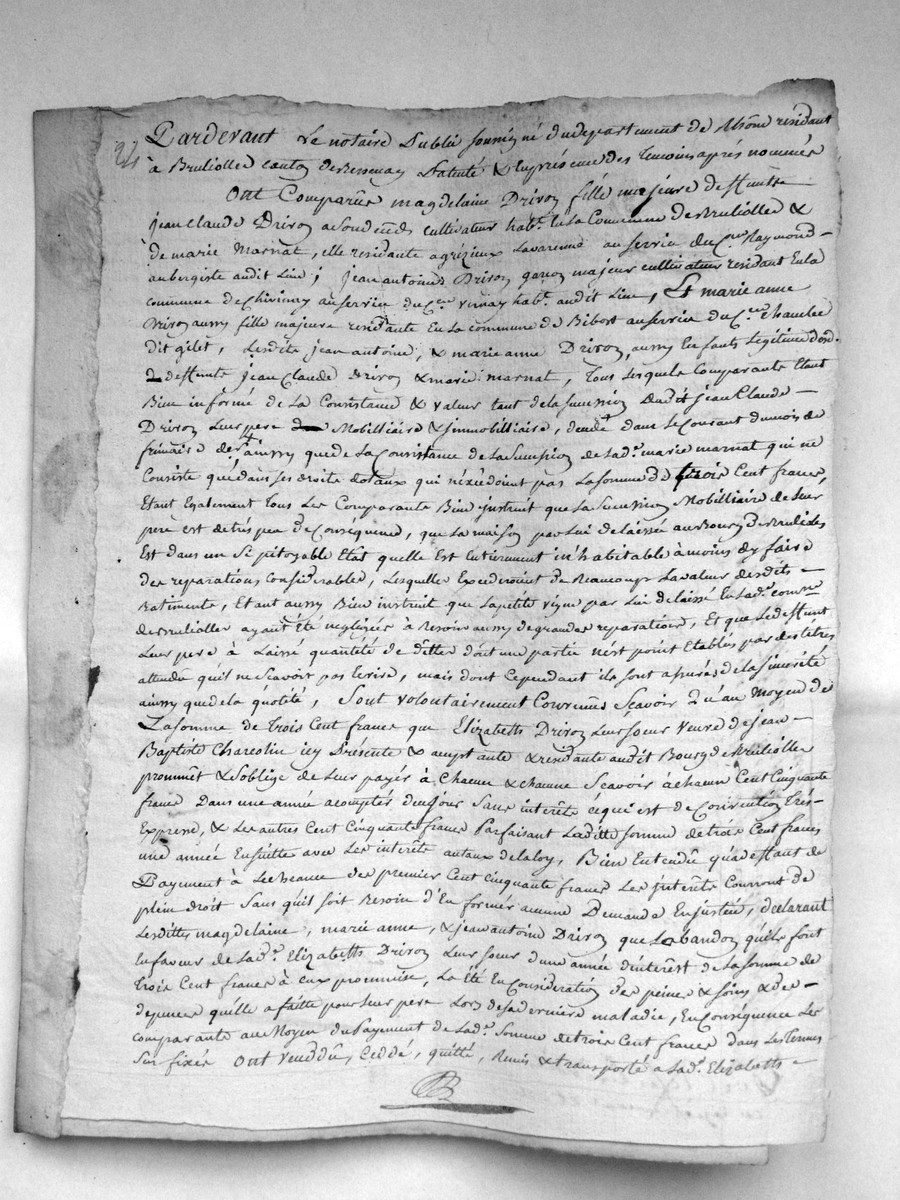 Pardevant Le notaire Public soussigné du departement du Rhône residant
à Brulliolle canton de Bessenay Patenté & En présence des Temoins après nommés
Ont Comparus magdelaine Drivon fille majeure deffunts
jean Claude Drivon cultivateur habt. de La Commune de Brulliolles &
de marie Marnat, elle residante a grézieux Lavarenne au service du Cen. Raymond
aubergiste audit Lieu, jean antoine Drivon garçon majeur cultivateur residant En La
commune de Chivinay au service du Cen. Vernay habt. audit Lieu, Et marie anne
Drivon aussy fille majeure residante En La commune de Bibost au service du Cen. Chanclee
dit gilet, Lesdits jean antoine, & marie anne Drivon, aussy Enfants Legitime dud.
deffunts jean Claude Drivon & marie marnat, Tous Lesquels Comparants Etant
Bien informé de La Consistance & valeur tant de la succession dudit jean Claude
Drivon Leur pere Mobilliaire & jmmobilliaire, decedé dans Le Courant du mois de
frimaire der. aussy que de La Consistance de La succession de Lade. marie marnat qui ne
Consiste que dans ses droits dotaux qui néxcédoint pas La somme de trois Cent francs,
Etant Egalement Tous Les Comparants Bien jnstruit que La succession Mobilliaire de Leur
pere est de très peu de Consequence, que La maison par Lui delaissé au Bourg de Brulioles
Est dans un Si pitoyable Etat quelle Est Entierement inhabitable à moins d'y faire
des reparations considerables, Lesquelles Excederoint de Beaucoup La valeur desdits
Batiments, Etant aussy Bien instruit que La petite vigne par Lui delaissé En Lade. comme
de Brulliolles ayant Eté négligée à Besoin aussy de grandes reparations, Et que Le deffunt
Leur pere à Laissé quantité de dettes dont une partie n'est point Etablis par des titres
attendu qu'il ne Scavoit pas Ecrire, mais dont Cependant ils sont assurés de la sincerité
aussy que de la quotité, Sont volontairement Convenus Sçavoir Qu'au Moyen de
La somme de Trois Cent francs que Elizabeth Drivon Leur soeur veuve de jean
Baptiste Charcotin icy Présente & acceptante & residante audit Bourg de Brulliolle
prommet & Soblige de Leur payer à Chacun & chacune Scavoir à chacun Cent Cinquante
francs Dans une année à compter de ce jour Sans interêts ce qui est de Convention très
Expresse, & Les autres Cent Cinquante francs Parfaisant Ladite somme de trois Cent francs
une année Ensuitte avec Les interêts au taux de la loy, Bien Entendû qu'à deffaut de
Payement à L'echeance des premier Cent cinquante francs Les jnterêts Courront de
plein droit Sans qu'il soit Besoin d'En former aucune Demande En justice, declarant
Lesdittes magdelaine, marie anne, & jean antoine Drivon que Labandon qu'ils font
En faveur de Lade. Elizabeth Drivon Leur soeur d'une année d'interêt de La somme de
Trois Cent francs à Eux prommise, La Eté En Considération des peines & soins & des
depences qu'elle a faitte pour Leur pere Lors de sa derniere maladie, En Conséquence Les
comparants au Moyen du Payement de Lade. Somme de trois Cent francs dans Les termes
Sus fixés Ont Venddû, Ceddé, quitté, Remis & transporté a Lade. Elizabeth